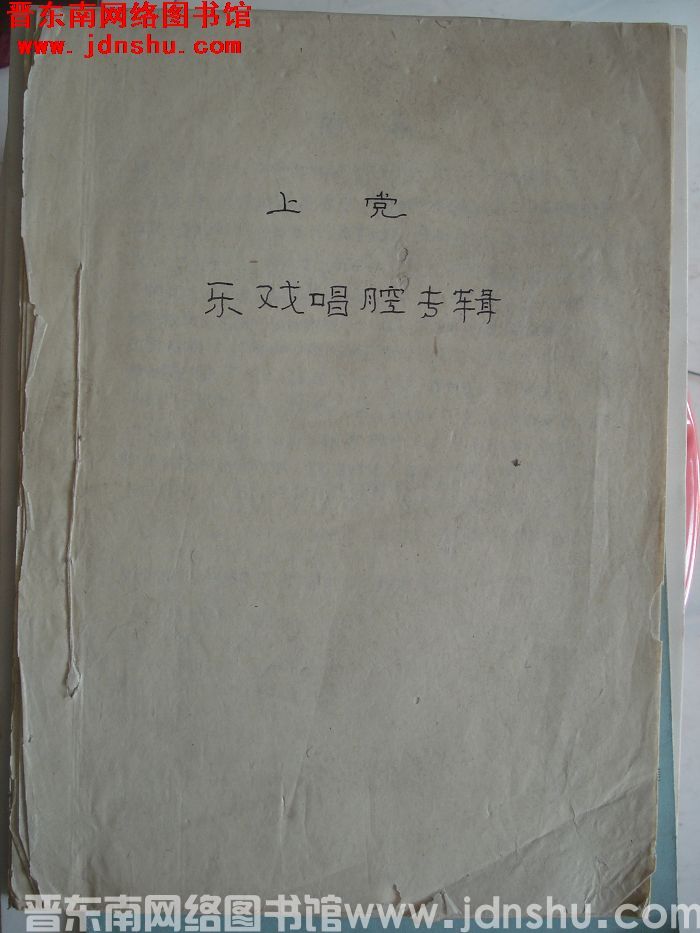 晋东南网络图书馆
www.jdnshu.com
上 党
乐戏唱腔专辑
晋东南网络图书馆www.jdnshu.com